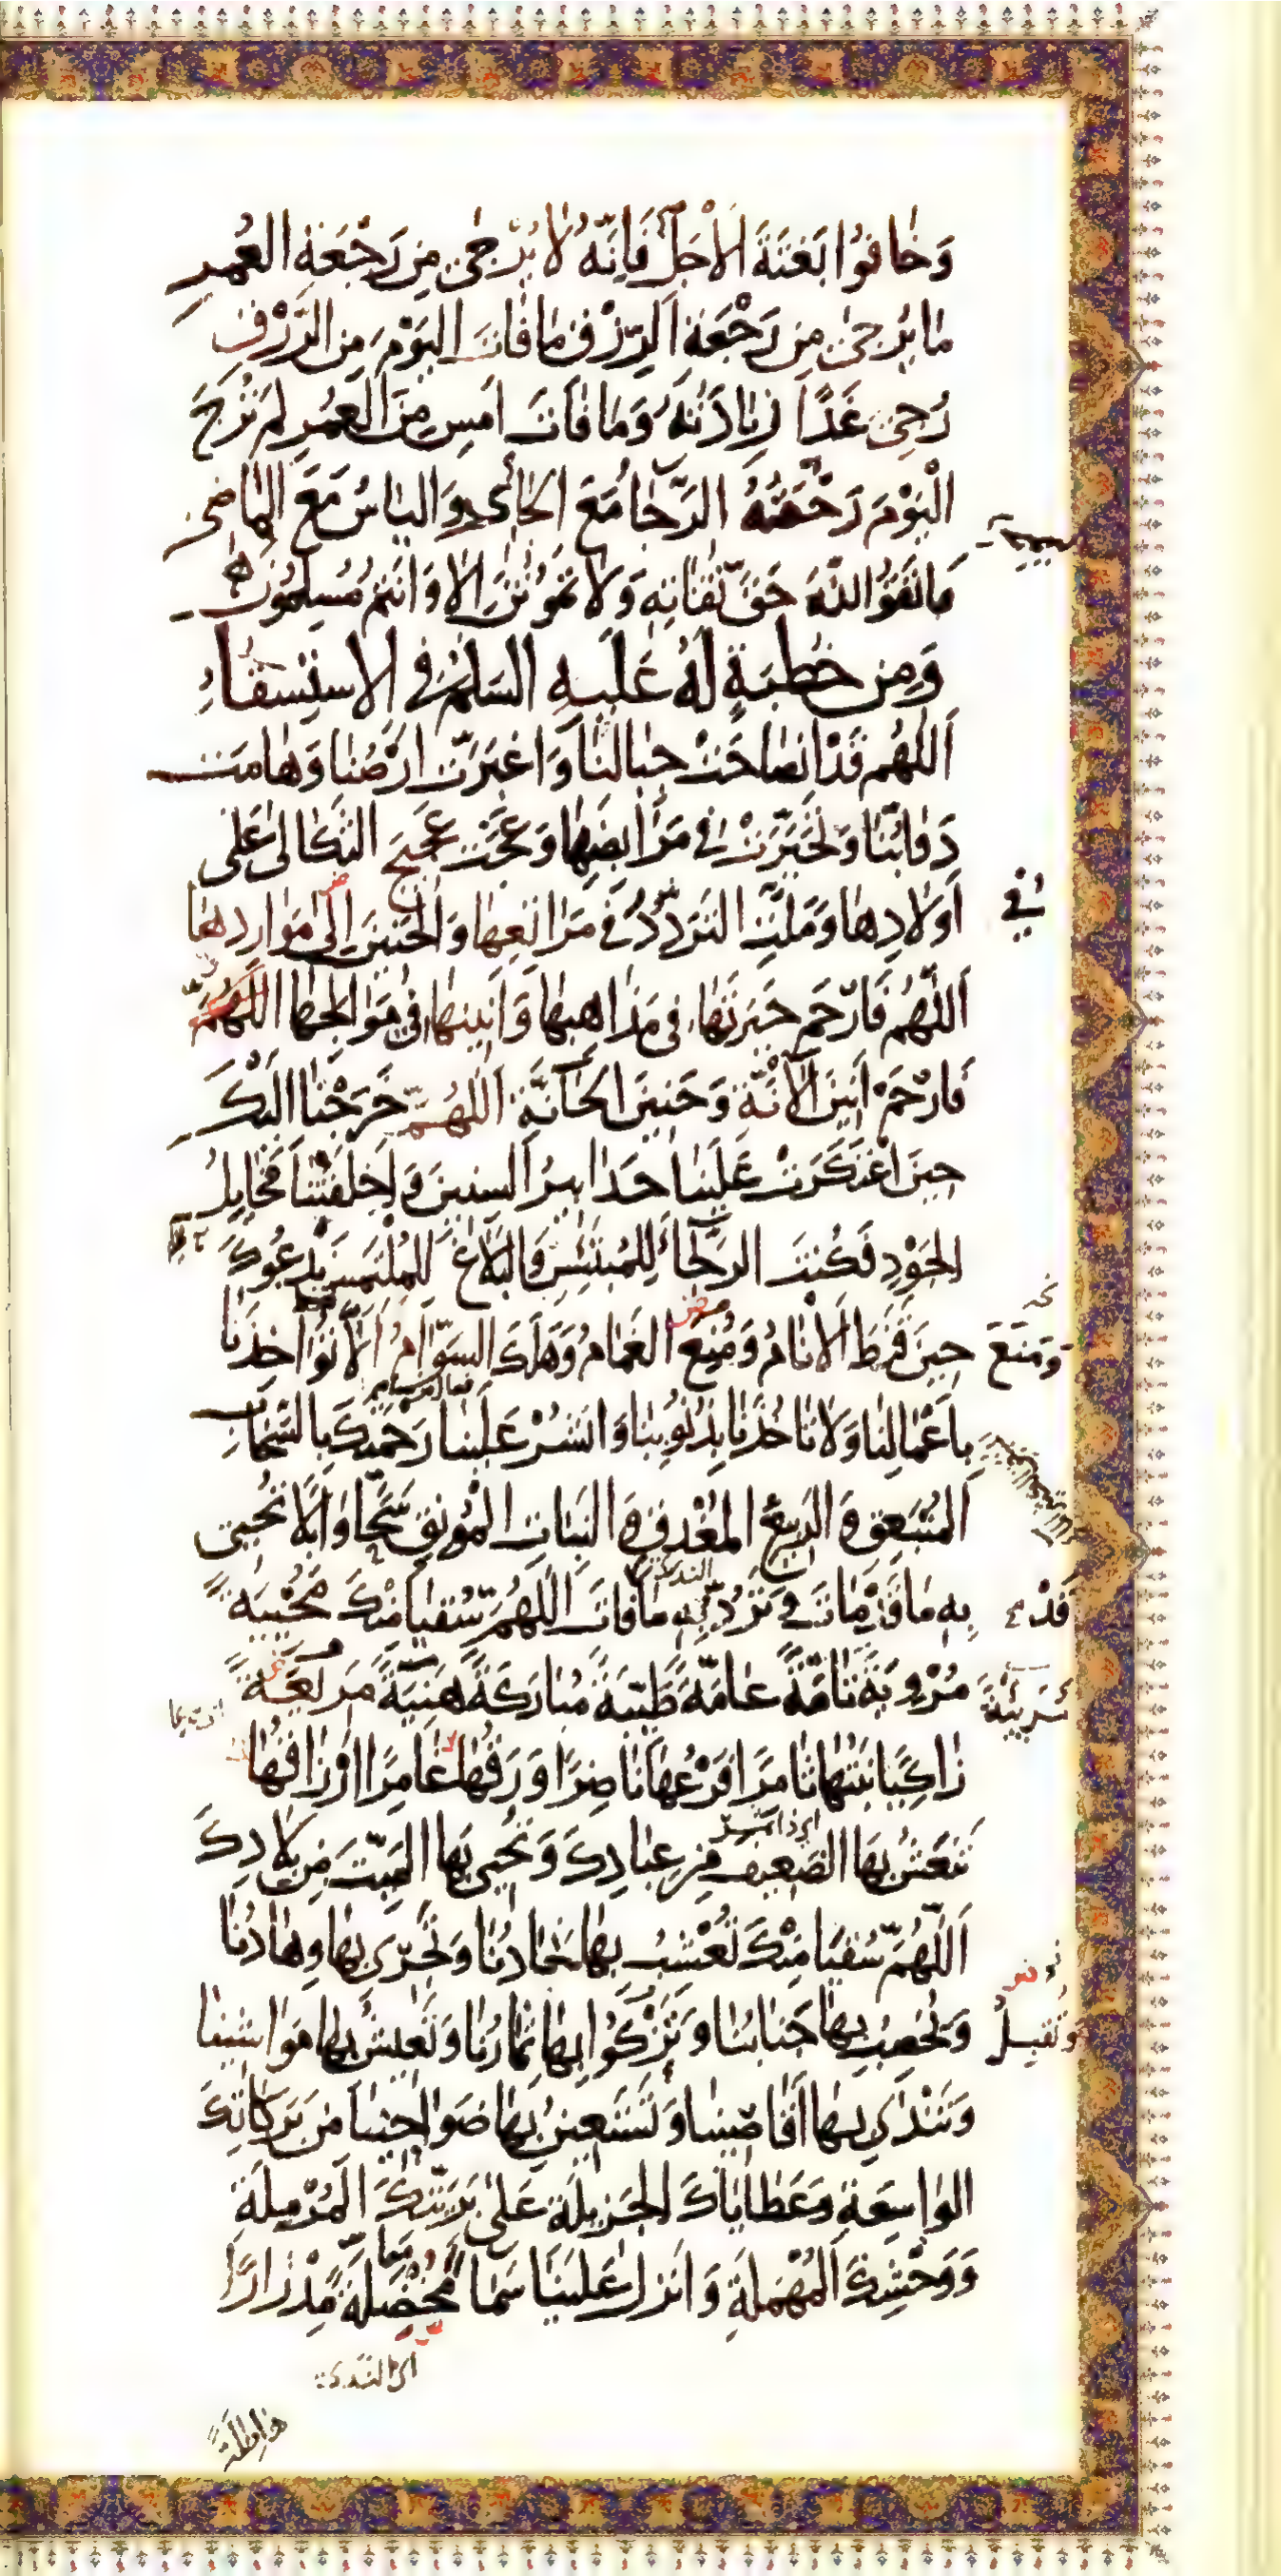 وَخَافُوا بَغْتَةَ الْأَجَلِ فَإِنَّهُ لَا يُرْجَى مِن رَجْعَةِ العُمرِ
مَا يُرجَى مِن رَجْعَةِ الرِّزْقِ مَا فَاتَ اليَوْمَ مِنَ الرِّزْقِ
رُجِيَ غَدًا زِيَادَتُهُ وَمَا فَاتَ أَمسِ مِنَ العُمُرِ لَم تُرْجَ
الْيَوْمَ رَجْعَتُهُ الرَّجَا مَعَ الجَائِي وَاليَاسُ مَعَ المَاضِي
فَاتَّقُوا اللّهَ حَقَّ تُقَاتِهِ وَلَا تَمُوتُنَّ إِلَّا وَأَنتُم مُسلِمُونَ
وَمِن خُطبَةٍ لَهُ عَلَيهِ السَلم فِي الاستِسقَاءِ
اَللّهُم قَدْ انصَاحَتْ جِبَالُنَا وَاغبَرَّت أَرْضُنَا وَهَامَت
دَوَابُّنَا وَتَحَيَّرَتْ فِي مَرَابِضِهَا وَعَجَّت عَجِيجَ الثَّكَالى عَلى
أَولَادِهَا وَمَلَّتِ التَرَدُّدَ فِي مَرَاتِعِهَا وَالحَنِينَ إِلَى مَوَارِدِهَا
فِي
اَللّهُم فَارْحَم حَيرَتَهَا فِي مَذَاهِبِهَا وَأَنِينَهَا فِي مَوَالِجِهَا اللّهُمَّ
فَارْحَمْ أَنِينَ الآنَّةِ وَحَنِينَ الحَانَّةِ اَللّهُمَّ خَرَجْنَا إِلَيْكَ
حِينَ اعْتَكَرَتْ عَلَينَا حَدَابِيرُ السِنِينَ وَأَخلَفَتْنَا مَخَايِلُ
الجَوْدِ فَكُنتَ الرَجَاءَ لِلمُبتَئِسِ وَالبَلَاغَ لِلمُلتَمِسِ نَدعُوكَ
حِينَ قَنَطَ الأَنَامُ وَمُنِعَ الغَمَامُ وَهَلَكَ السَوَامُ أَلَّا تُؤَاخِذَنَا
وَمَنَعَ
بِأَعْمَالِنَا وَلَا تَأخُذَنَا بِذُنُوبِنَا وَانشُرْ عَلَينَا رَحمَتَكَ بِالسَّحَابِ
المُنْبَعِقِ وَالرَبِيعِ المُغْدِقِ وَالنَبَاتِ المُونِقِ سَحًّا وَابِلًا تُحيِي
بِهِ مَا قَدْ مَاتَ وَتَرُدُّ بِهِ مَا فَاتَ اللّهُمَّ سُقيَا مِنْكَ مُحْيِيَةً
قَدْ
مُرْوِيَةً تَامَّةً عَامَّةً طَيِّبَةً مُبَارَكَةً هَنِيَّةً مَرِيعَةً
زَاكِيًا نَبْتُهَا ثَامِرًا فَرْعُهَا نَاضِرًا وَرَقُهَا
تَنعَشُ بِهَا الضَعِيفَ مِن عِبَادِكَ وَتُحيِي بِهَا المَيِّتَ مِن بِلَادِكَ
اَللّهُمَّ سُقيَا مِنْكَ تُعْشِبُ بِهَا نِجَادُنَا وَتَجْرِي بِهَا وِهَادُنَا
وَتُخصِبُ بِهَا جَنَابُنَا وَتَزْكُوا بِهَا ثِمَارُنَا وَتَعِيشُ بِهَا مَوَاشِينَا
وَتُقبِلُ
وَتَنْدَى بِهَا أَقَاصِينَا وَتَستَعِينُ بِهَا ضَوَاحِينَا مِن بَرَكَاتِكَ
الوَاسِعَةِ وَعَطَايَاكَ الجَزِيلَةِ عَلَى بَرِيَّتِكَ المُرْمِلَةِ
وَوَحْشِكَ المُهْمَلَةِ وَأَنزِل عَلَينَا سَمَاءً مُخْضِلَةً مِدْرَارًا
هَاطِلَةً